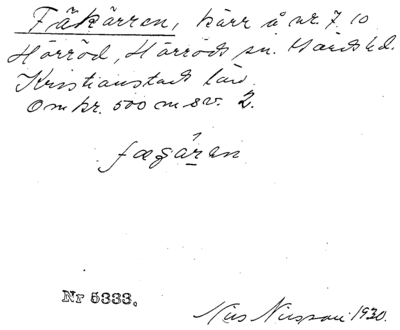 Fäkärren, kärr å nr. 7. 10
Hörröd, Hörröds sn. Gärds hd.
Kristianstads län.
Omkr. 500 m sv. 2.
fægáran
Nr 5333.
Nils Nilsson 1930.